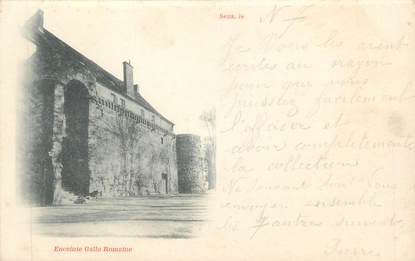 Sens, le
N° 7
Je vous les avent
écrites au crayon
pour que vous
puissiez facilement
l'effacer et
avoir complètement
la collection
Ne pouvant vous
envoyer ensemble
les autres
Enceinte Gallo Romaine